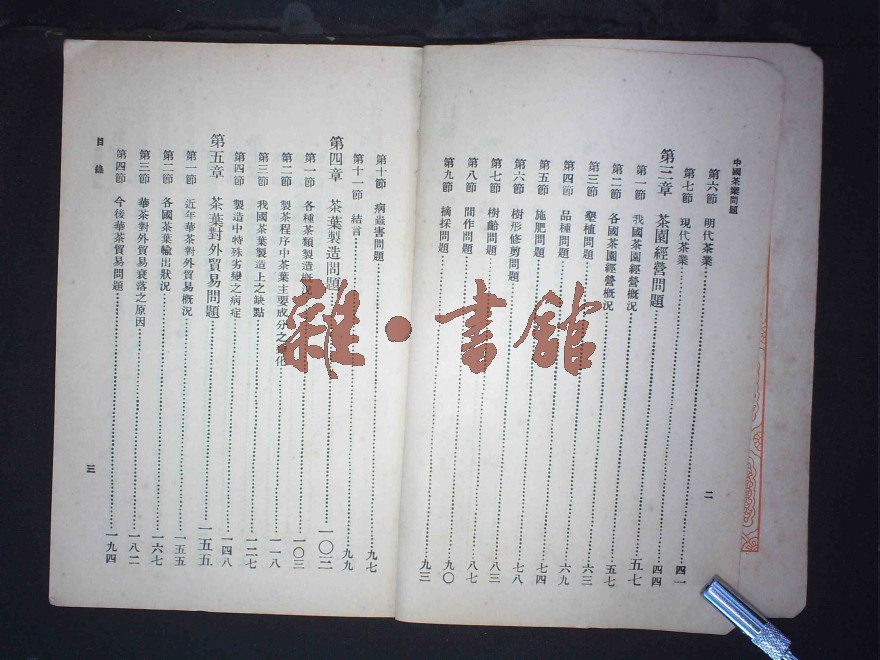 中國茶業問題
第六節 明代茶業……四一
第七節 現代茶業……四四
第三章 茶園經營問題……五七
第一節 我國茶園經營概況……五七
第二節 各國茶園經營概況……六三
第三節 墾植問題……六九
第四節 品種問題……七四
第五節 施肥問題……七八
第六節 樹形修剪問題……八三
第七節 樹齡問題……八七
第八節 間作問題……九〇
第九節 摘採問題……九三
二
第十節 病蟲害問題……九七
第十一節 結言……九九
第四章 茶葉製造問題……一〇三
第一節 各種茶類製造概況……一〇三
第二節 製茶程序中茶葉主要成分之化……一一八
第三節 我國茶葉製造上之缺點……一二七
第四節 製造中特殊劣變之病症……一四八
第五章 茶葉對外貿易問題……一五五
第一節 近年華茶對外貿易概況……一五五
第二節 各國茶葉輸出狀況……一六七
第三節 華茶對外貿易衰落之原因……一八二
第四節 今後華茶貿易問題……一九四
目錄
三
雜·書館